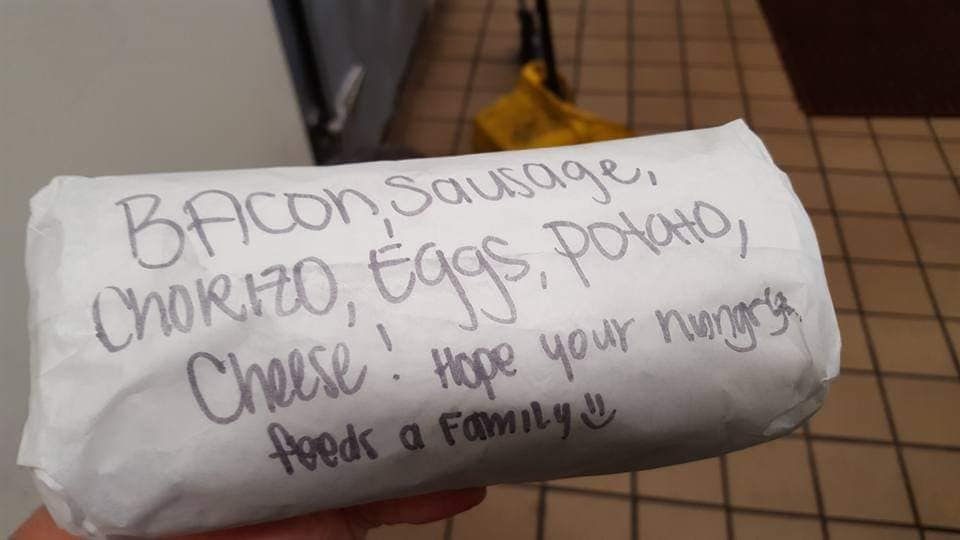 BACON, Sausage,
CHORIZO, Eggs, Potato,
Cheese! Hope your hungry,
feeds a Family